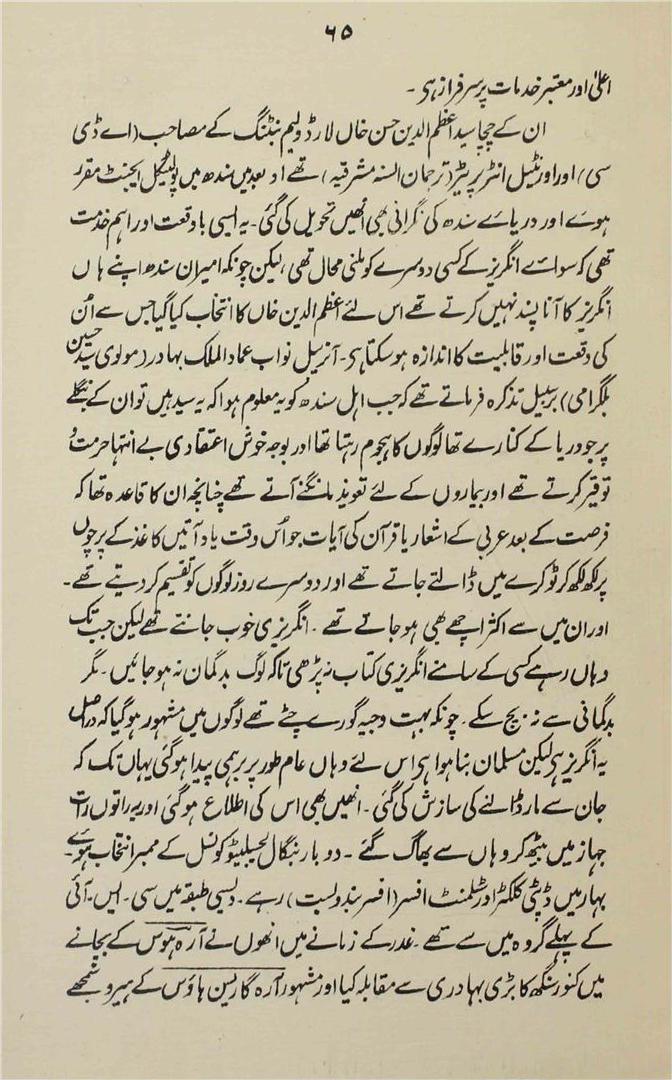 ۶۵
اعلیٰ اور معتبر خدمات پر سرفراز ہی ۔
ان کے چچا سید اعظم الدین حسن خاں لارڈ ولیم بنٹنگ کے مصاحب (اے ڈی
سی) اور اورنٹیل انٹرپریٹر (ترجمان السنہ مشرقیہ) تھے اور بعد میں سندھ میں پولٹیکل ایجنٹ مقرر
ہوے اور دریاے سندھ کی نگرانی بھی انھیں تحویل کی گئی ۔ یہ ایسی باوقعت اور اہم خدمت
تھی کہ سواے انگریز کے کسی دوسرے کو ملنی محال تھی ، لیکن چونکہ امیران سندھ اپنے ہاں
انگریز کا آنا پسند نہیں کرتے تھے اس لئے اعظم الدین خاں کا انتخاب کیا گیا جس سے اُن
کی وقعت اور قابلیت کا اندازہ ہو سکتا ہی ۔ آنریبل نواب عماد الملک بہادر (مولوی سید حسین
بلگرامی) برسبیل تذکرہ فرماتے تھے کہ جب اہل سندھ کو یہ معلوم ہوا کہ یہ سید ہیں تو ان کے بنگلے
پر جو دریا کے کنارے تھا لوگوں کا ہجوم رہتا تھا اور بوجہ خوش اعتقادی بے انتہا حرمت و
توقیر کرتے تھے اور بیماروں کے لئے تعویذ مانگنے آتے تھے چنانچہ ان کا قاعدہ تھا کہ
فرصت کے بعد عربی کے اشعار یا قرآن کی آیات جو اُس وقت یاد آتیں کاغذ کے پرچوں
پر لکھ لکھ کر ٹوکرے میں ڈالتے جاتے تھے اور دوسرے روز لوگوں کو تقسیم کر دیتے تھے ۔
اور ان میں سے اکثر اچھے بھی ہو جاتے تھے ۔ انگریزی خوب جانتے تھے لیکن جب تک
وہاں رہے کسی کے سامنے انگریزی کتاب نہ پڑھی تاکہ لوگ بدگمان نہ ہو جائیں ۔ مگر
بدگمانی سے نہ بچ سکے ۔ چونکہ بہت وجیہ گورے چٹے تھے لوگوں میں مشہور ہو گیا کہ دراصل
یہ انگریز ہی لیکن مسلمان بنا ہوا ہی اس لئے وہاں عام طور پر برہمی پیدا ہو گئی یہاں تک کہ
جان سے مار ڈالنے کی سازش کی گئی ۔ انھیں بھی اس کی اطلاع ہو گئی اور یہ راتوں رات
جہاز میں بیٹھ کر وہاں سے بھاگ گئے ۔ دو بار بنگال لیجسلیٹو کونسل کے ممبر انتخاب ہوے ۔
بہار میں ڈپٹی کلکٹر اور سٹلمنٹ افسر (افسر بندوبست) رہے ۔ دیسی طبقہ میں سی ۔ ایس ۔ آئی
کے پہلے گروہ میں سے تھے ۔ غدر کے زمانے میں انھوں نے آرہ ہوس کے بچانے
میں کنور سنگھ کا بڑی بہادری سے مقابلہ کیا اور مشہور آرہ گاریسن ہاؤس کے ہیرو سمجھے